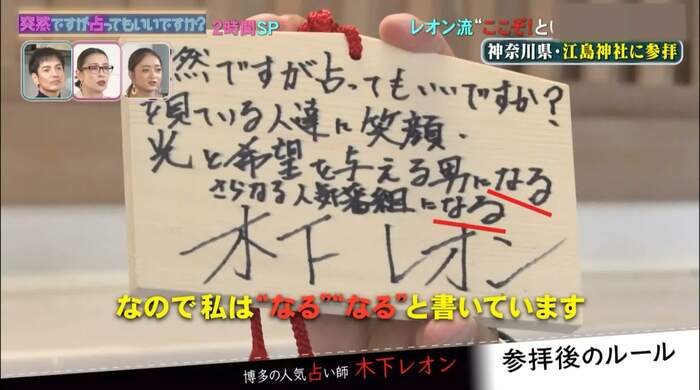 突然ですが占ってもいいですか?
2時間SP
レオン流“ここぞ!と
神奈川県・江島神社に参拝
然ですが占ってもいいですか?
を見ている人達に笑顔、
光と希望を与える男になる
さらなる人気番組になる
木下レオン
なので私は“なる”“なる”と書いています
博多の人気占い師 木下レオン
参拝後のルール